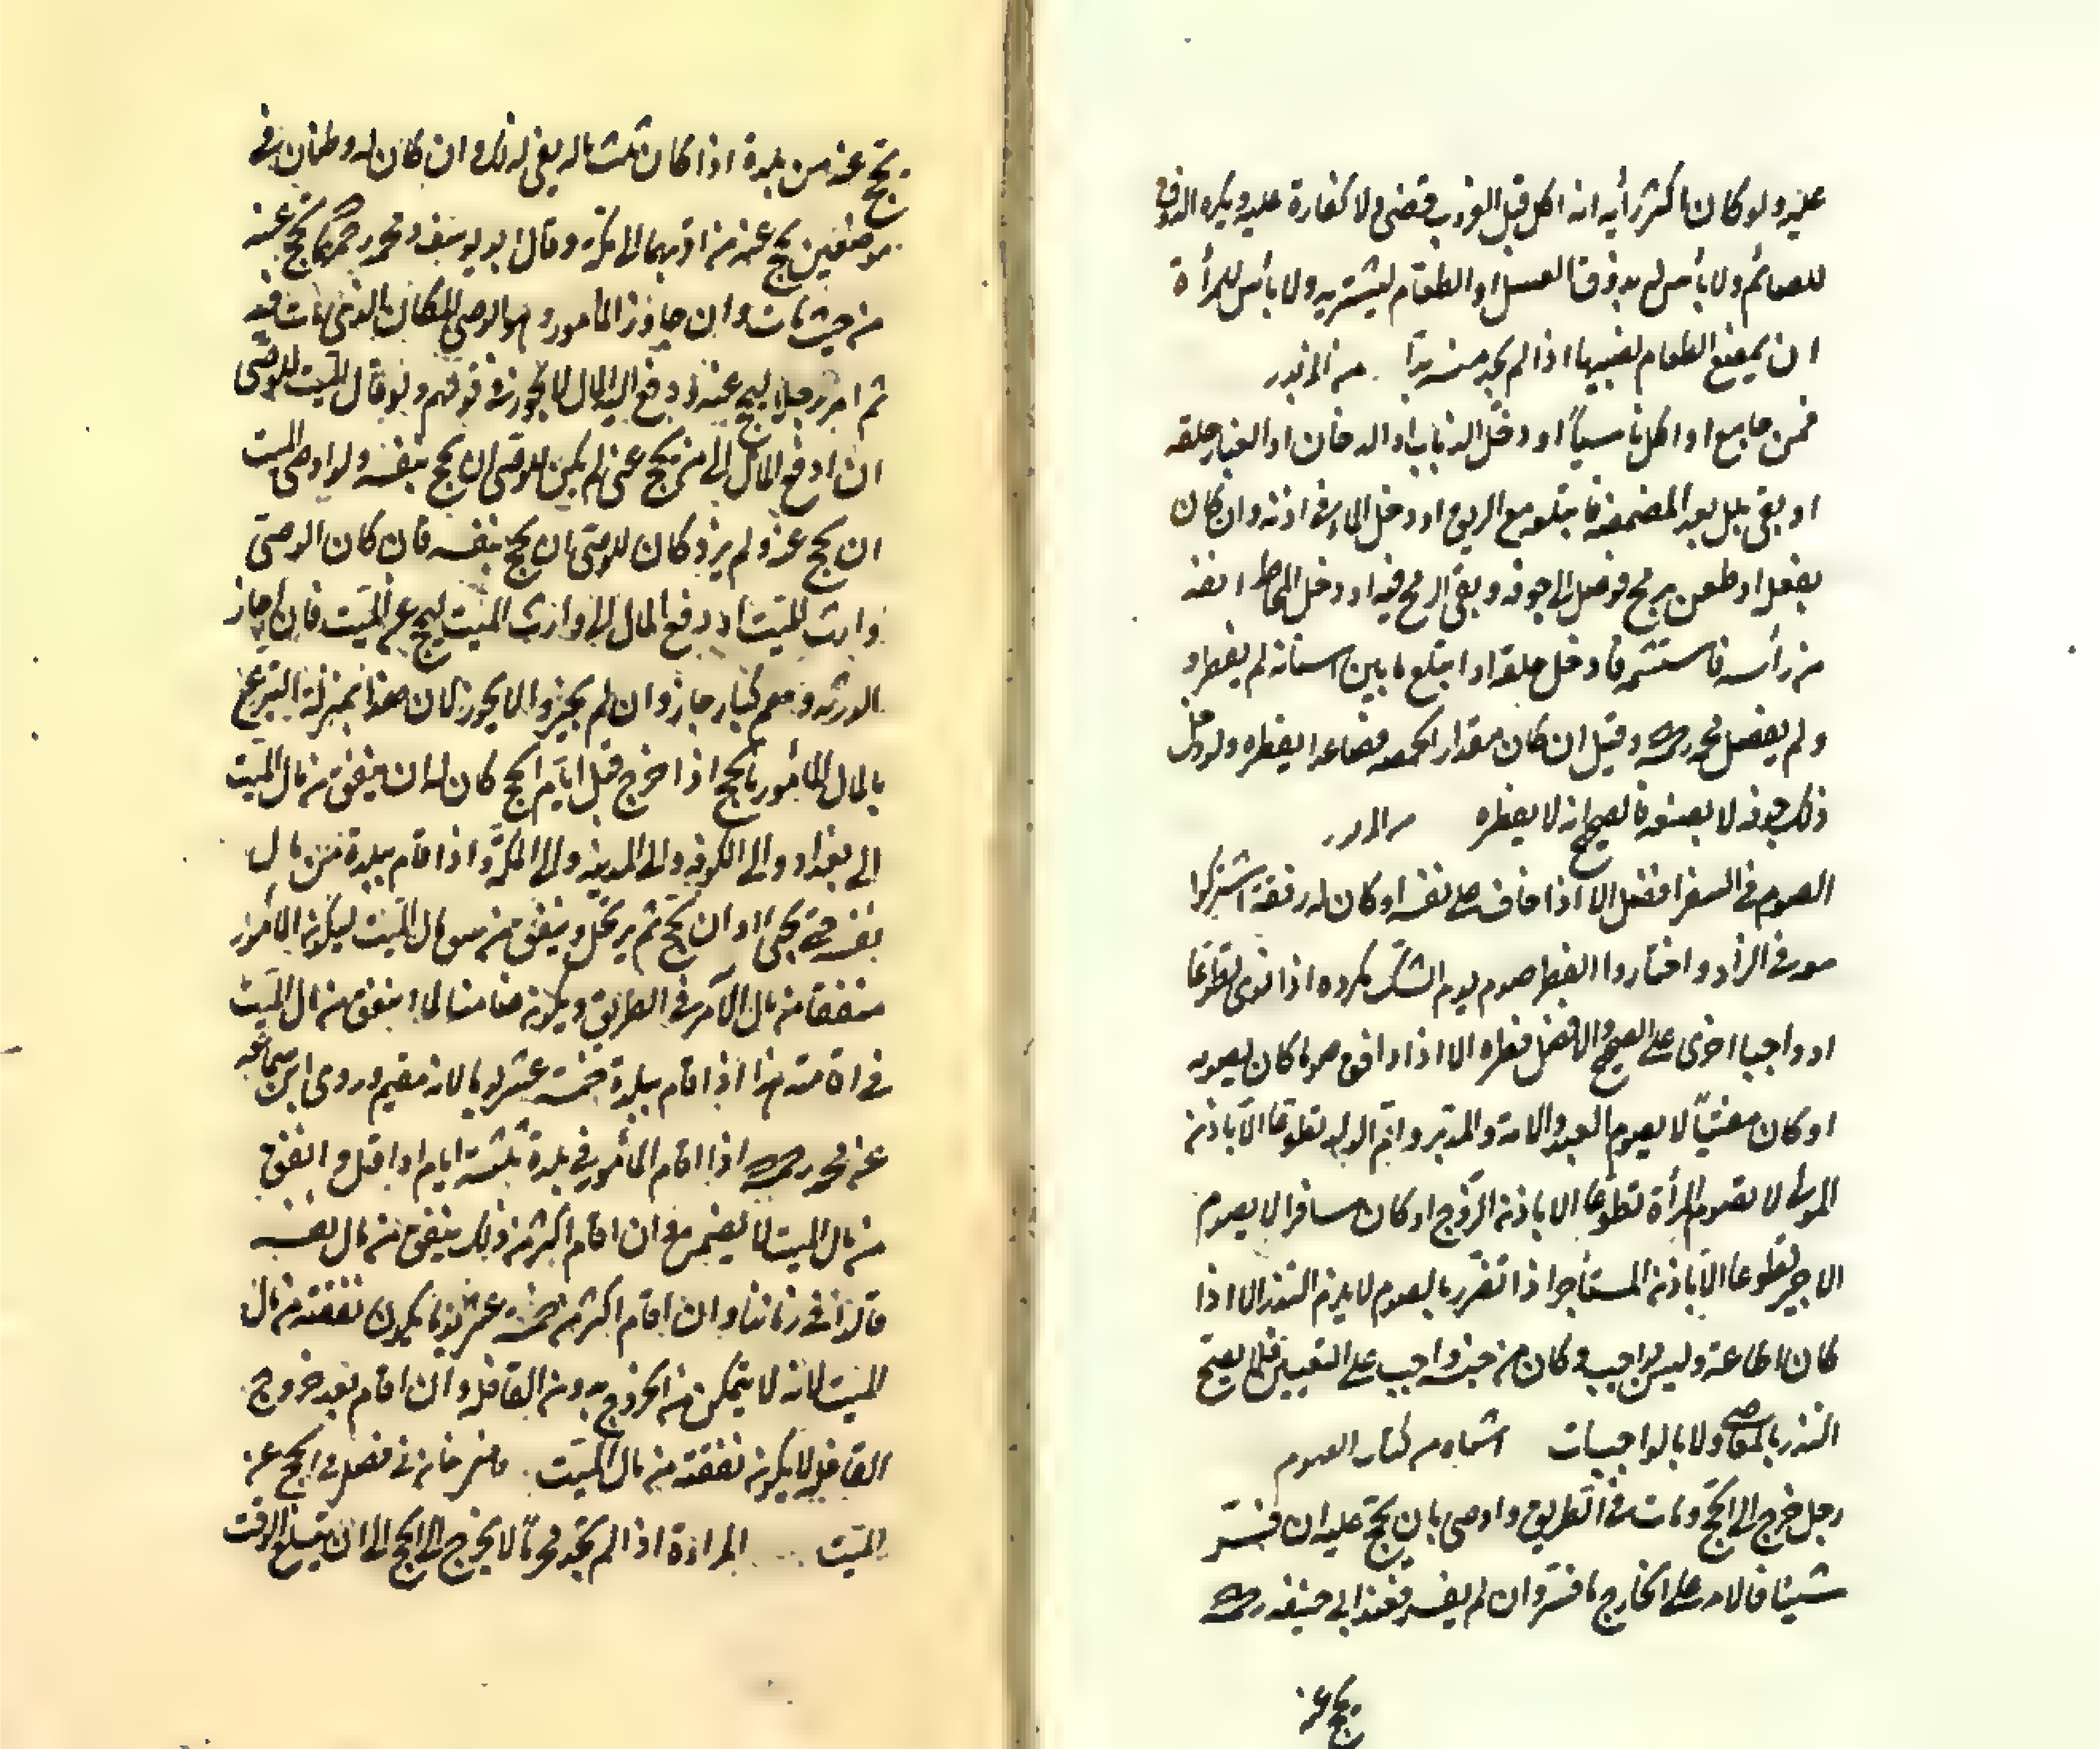 عليه ولو كان اكثر رأيه انه اكل قبل الغروب قضى ولا كفارة عليه ويكره الذوق
للصائم ولا بأس ان يذوق العسل او الطعام ليشتريه ولا بأس للمرأة
ان يمضغ الطعام لصبيها اذا لم يجد منه بدا
فمن جامع او اكل ناسيا او دخل الذباب او الدخان او الغبار حلقه
او بقي بلل بعد المضمضة فابتلعه مع الريق او دخل الماء في اذنه وان كان
بفعله او طعن برمح فوصل الى جوفه وبقي الرمح فيه او دخل المخاط انفه
من رأسه فاستشمه فادخل حلقه او ابتلع ما بين اسنانه لم يفطر و
ولم يفصل محمد رحمه وقيل ان كان مقدار الحمصة فصاعدا يفطره ولو دخل
ذلك جوفه لا بصنعه فالصحيح انه لا يفطره
الصوم في السفر افضل الا اذا خاف على نفسه او كان له رفقة اشتركوا
معه في الزاد واختاروا الفطر صوم يوم الشك مكروه اذا نوى تطوعا
او واجبا اخرى على الصحيح والافضل فطره الا اذا وافق صوما كان يصومه
او كان مفتيا لا يصوم العبد والامة والمدبر وام الولد تطوعا الا باذن
المولى لا تصوم المرأة تطوعا الا باذن الزوج او كان مسافرا لا يصوم
الاجير تطوعا الا باذن المستأجر اذا تضرر بالصوم لا يلزم النذر الا اذا
كان طاعة وليس بواجب وكان من جنسه واجب على التعيين فلا يصح
النذر بالمعاصي ولا بالواجبات اشباه من كتاب الصوم
رجل خرج الى الحج ومات في الطريق واوصى بان يحج عليه ان فسر
شيئا فالامر على الخارج ما فسر وان لم يفسر فعند ابي حنيفة رحمه
يحج عنه
يحج عنه من بلدة اذا كان ثلث ماله يفي لذلك وان كان له وطنان في
موضعين يحج عنه من اقربهما الى مكة وقال ابو يوسف ومحمد رحمهما يحج عنه
من حيث مات وان جاوز المأمور والوصي المكان الذي مات فيه
ثم امر رجلا ليحج عنه ودفع اليه المال لا يجوز في قولهم ولو قال الميت للوصي
ان ادفع المال الى من يحج عني لم يكن للوصي ان يحج بنفسه ولو اوصى الميت
ان يحج عنه ولم يزد كان للوصي ان يحج بنفسه فان كان الوصي
وارث الميت او دفع المال الى وارث الميت ليحج عن الميت فان اجاز
الورثة وهم كبار جاز وان لم يجيزوا لا يجوز لان هذا بمنزلة التبرع
بالمال المأمور بالحج اذا خرج قبل ايام الحج كان له ان ينفق من مال الميت
الى بغداد والى الكوفة والى المدينة والى مكة واذا اقام ببلدة من مال
نفسه حتى يجئ اوان الحج ثم يرتحل وينفق من مال الميت ليكون المأمور
منفقا من مال الآمر في الطريق ويكون ضامنا لما انفق من مال الميت
في اقامته هذا اذا اقام ببلدة خمسة عشر يوما لانه مقيم وروى ابن سماعة
عن محمد رحمه اذا اقام المأمور في بلدة ثلثة ايام او اقل وانفق
من مال الميت لا يضمن وان اقام اكثر من ذلك ينفق من مال نفسه
قالوا في زماننا وان اقام اكثر من خمسة عشر يوما يكون نفقته من مال
الميت لانه لا يتمكن من الخروج بدون القافلة وان اقام بعد خروج
القافلة لا يكون نفقته من مال الميت في فصل في الحج عن
الميت المرأة اذا لم تجد محرما لا يخرج الى الحج الى ان يبلغ الوقت